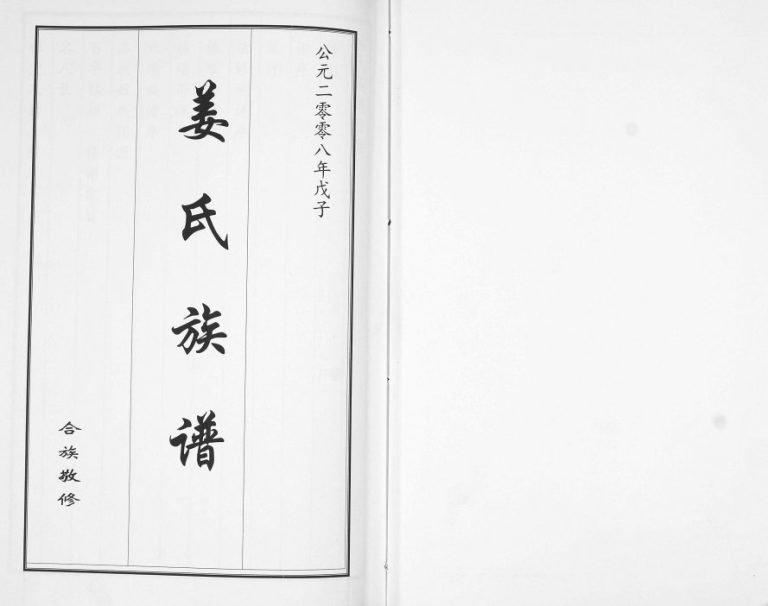 公元二零零八年戊子
姜氏族谱
合族敬修